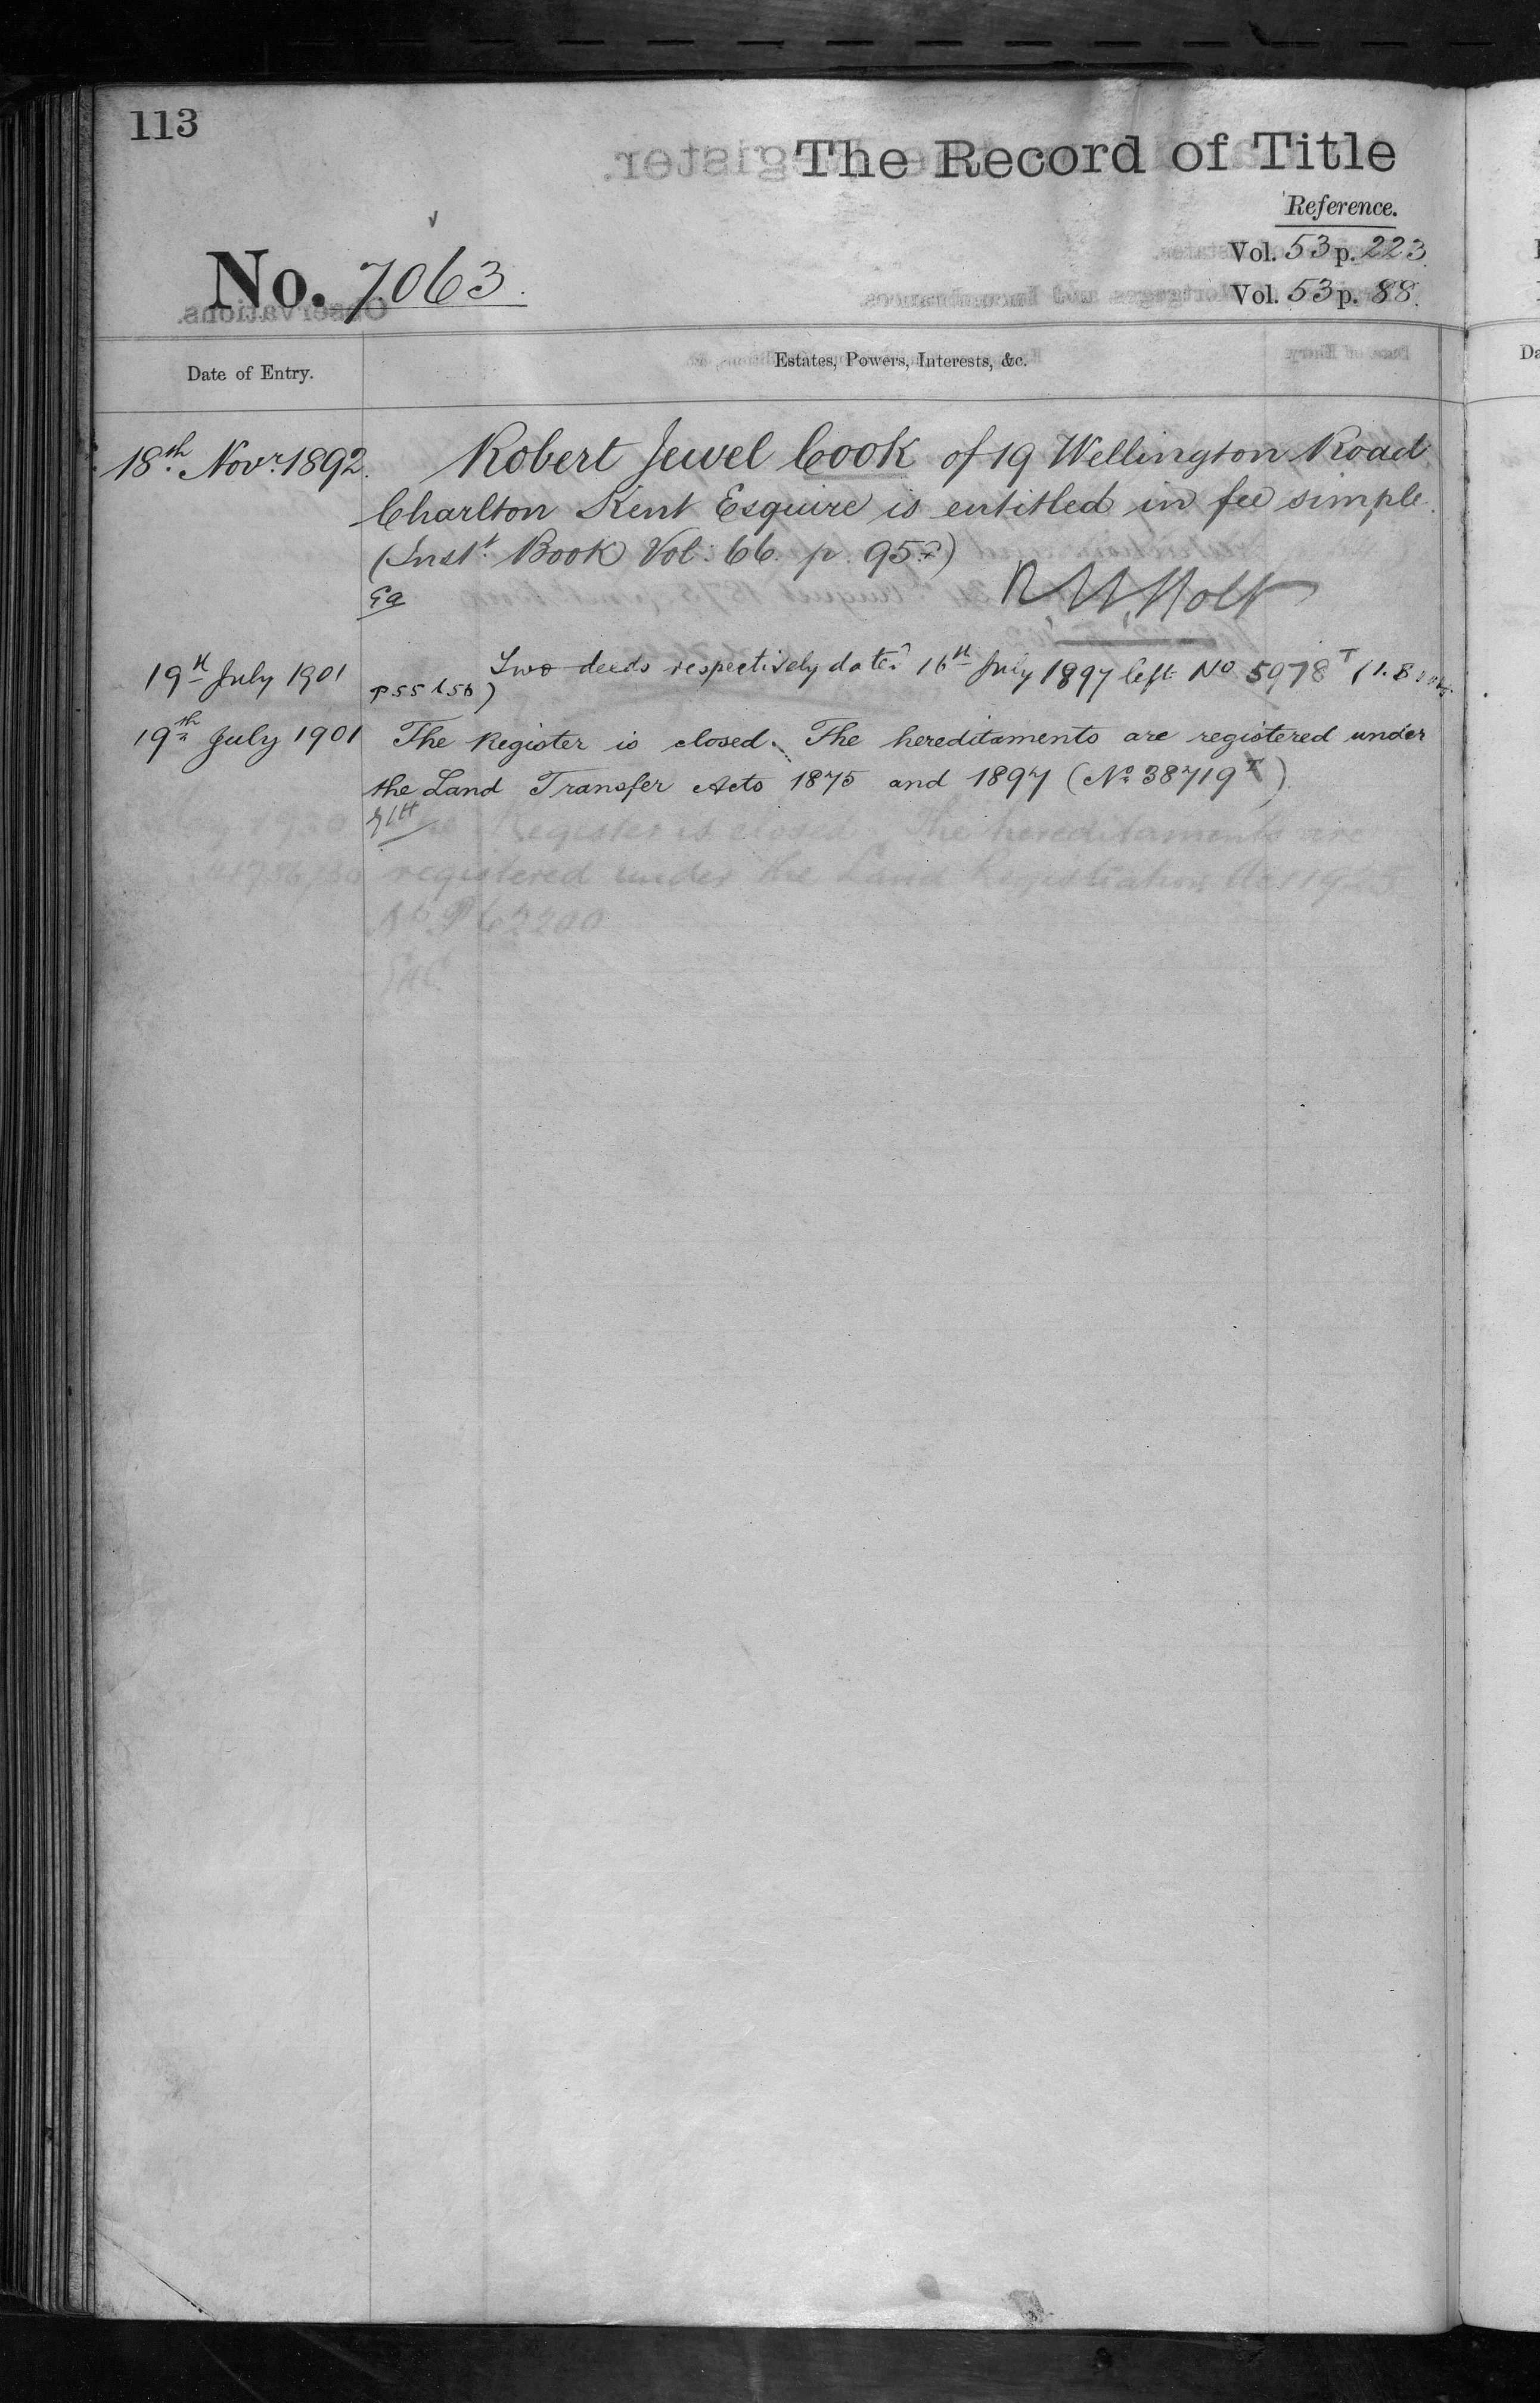 113
The Record of Title
Reference.
No. 7063.
Vol. 53 p. 223
Vol. 53 p. 88.
Date of Entry.
Estates, Powers, Interests, &c.
18th Novr. 1892. Robert Jewel Cook of 19 Wellington Road
Charlton Kent Esquire is entitled in fee simple.
(Instt. Book Vol: 66. p. 95.)
19th July 1901 Two deeds respectively dated 16th July 1897 left No 5978 T
p 55 & 56)
19th July 1901 The Register is closed. The hereditaments are registered under
the Land Transfer Acts 1875 and 1897 (No. 38719 )
The Register is closed. The hereditaments are
registered under the Land Registration Act 1925
No P62200